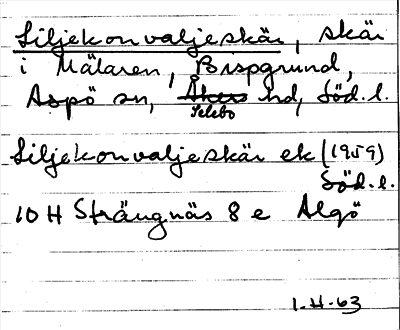 Liljekonvaljeskär, skär
i Mälaren, Bispgrund,
Aspö sn, Åkers hd, Söd.l.
Selebo
Liljekonvaljeskär ek (1959)
Söd.l.
10 H Strängnäs 8 e Algö
1-H-63